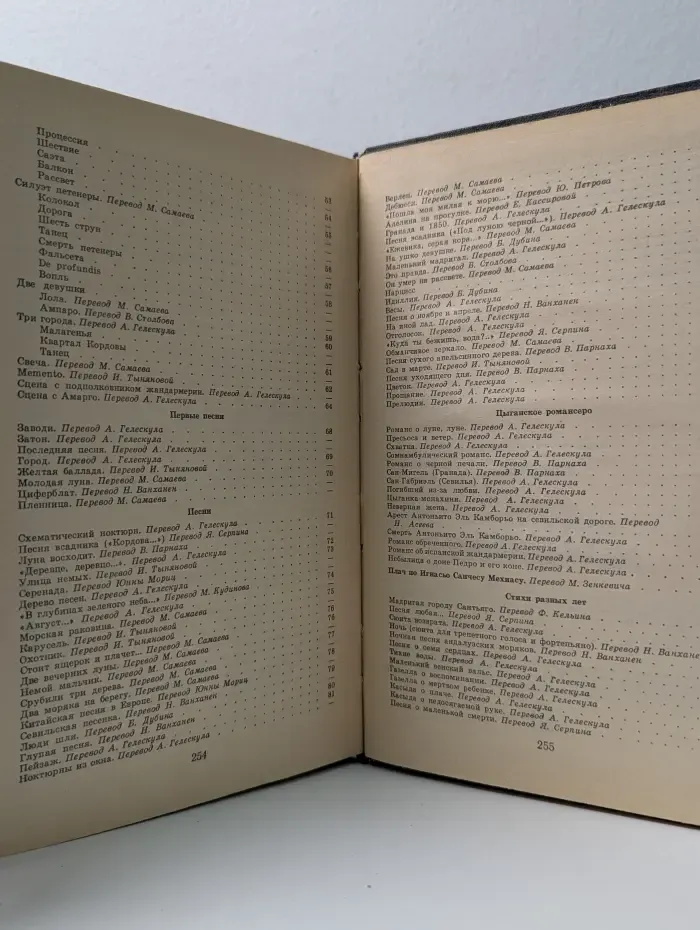 Процессия
Шествие
Саэта
Балкон
Рассвет
Силуэт петенеры. Перевод М. Самаева 53
Колокол —
Дорога 54
Шесть струн —
Танец 55
Смерть петенеры —
Фальсета
De profundis 56
Вопль 57
Две девушки
Лола. Перевод М. Самаева 58
Ампаро. Перевод В. Столбова —
Три города. Перевод А. Гелескула
Малагенья 59
Квартал Кордовы 60
Танец —
Свеча. Перевод М. Самаева 61
Memento. Перевод И. Тыняновой —
Сцена с подполковником жандармерии. Перевод А. Гелескула 62
Сцена с Амарго. Перевод А. Гелескула 64
Первые песни
Заводи. Перевод А. Гелескула 68
Затон. Перевод А. Гелескула —
Последняя песня. Перевод А. Гелескула —
Город. Перевод А. Гелескула 69
Желтая баллада. Перевод И. Тыняновой —
Молодая луна. Перевод М. Самаева 70
Циферблат. Перевод Н. Ванханен —
Пленница. Перевод М. Самаева —
Песни
Схематический ноктюрн. Перевод А. Гелескула 71
Песня всадника («Кордова...») Перевод Я. Серпина —
Луна восходит. Перевод В. Парнаха 72
«Деревце, деревцо...». Перевод А. Гелескула —
Улица немых. Перевод И. Тыняновой 73
Серенада. Перевод Юнны Мориц —
Дерево песен. Перевод А. Гелескула 74
«В глубинах зеленого неба...» Перевод М. Кудинова —
«Август...» Перевод А. Гелескула 75
Морская раковина. Перевод М. Самаева —
Карусель. Перевод И. Тыняновой 76
Охотник. Перевод И. Тыняновой
Стоит ящерок и плачет... Перевод М. Самаева 77
Две вечерних луны. Перевод М. Самаева —
Немой мальчик. Перевод М. Самаева 78
Срубили три дерева. Перевод М. Самаева —
Два моряка на берегу. Перевод М. Самаева 79
Китайская песня в Европе. Перевод Юнны Мориц —
Севильская песенка. Перевод Н. Ванханен 80
Люди шли. Перевод Б. Дубина 81
Глупая песня. Перевод Н. Ванханен —
Пейзаж. Перевод А. Гелескула —
Ноктюрны из окна. Перевод А. Гелескула
254
Верлен. Перевод М. Самаева
Дебюсси. Перевод М. Самаева
«Пошла моя милая к морю...» Перевод Ю. Петрова
Аделина на прогулке. Перевод Е. Кассировой
Гранада и 1850. Перевод А. Гелескула
Песня всадника («Под луною черной...»). Перевод А. Гелескула
«Ежевика, серая кора...» Перевод М. Самаева
На ушко девушке. Перевод Б. Дубина
Маленький мадригал. Перевод А. Гелескула
Это правда. Перевод В. Столбова
Он умер на рассвете. Перевод М. Самаева
Нарцисс
Идиллия. Перевод Б. Дубина
Весы. Перевод А. Гелескула
Песня о ноябре и апреле. Перевод Н. Ванханен
На иной лад. Перевод А. Гелескула
Отголосок. Перевод А. Гелескула
«Куда ты бежишь, вода?..» Перевод Я. Серпина
Обманчивое зеркало. Перевод М. Самаева
Песня сухого апельсинного дерева. Перевод В. Парнаха
Сад в марте. Перевод И. Тыняновой
Песня уходящего дня. Перевод В. Парнаха
Цветок. Перевод А. Гелескула
Прощание. Перевод А. Гелескула
Прелюдия. Перевод А. Гелескула
Цыганское романсеро
Романс о луне, луне. Перевод А. Гелескула
Пресьоса и ветер. Перевод А. Гелескула
Схватка. Перевод А. Гелескула
Сомнамбулический романс. Перевод А. Гелескула
Романс о черной печали. Перевод В. Парнаха
Сан-Мигель (Гранада). Перевод В. Парнаха
Сан Габриэль (Севилья). Перевод А. Гелескула
Погибший из-за любви. Перевод А. Гелескула
Цыганка-монахиня. Перевод А. Гелескула
Неверная жена. Перевод А. Гелескула
Арест Антоньито Эль Камборьо на севильской дороге. Перевод
Н. Асеева
Смерть Антоньито Эль Камборьо. Перевод А. Гелескула
Романс обреченного. Перевод А. Гелескула
Романс об испанской жандармерии. Перевод А. Гелескула
Небылица о доне Педро и его коне. Перевод А. Гелескула
Плач по Игнасио Санчесу Мехиасу. Перевод М. Зенкевича
Стихи разных лет
Мадригал городу Сантьяго. Перевод Ф. Кельина
Песня любая... Перевод Я. Серпина
Сюита возврата. Перевод А. Гелескула
Ночь (сюита для трепетного голоса и фортепьяно). Перевод Н. Ванханен
Ночная песня андалузских моряков. Перевод Н. Ванханен
Песня о семи сердцах. Перевод А. Гелескула
Тихие воды. Перевод А. Гелескула
Маленький венский вальс. Перевод А. Гелескула
Газелла о воспоминании. Перевод А. Гелескула
Газелла о мертвом ребенке. Перевод А. Гелескула
Касыда о плаче. Перевод А. Гелескула
Касыда о недосягаемой руке. Перевод А. Гелескула
Песня о маленькой смерти. Перевод Я. Серпина
255